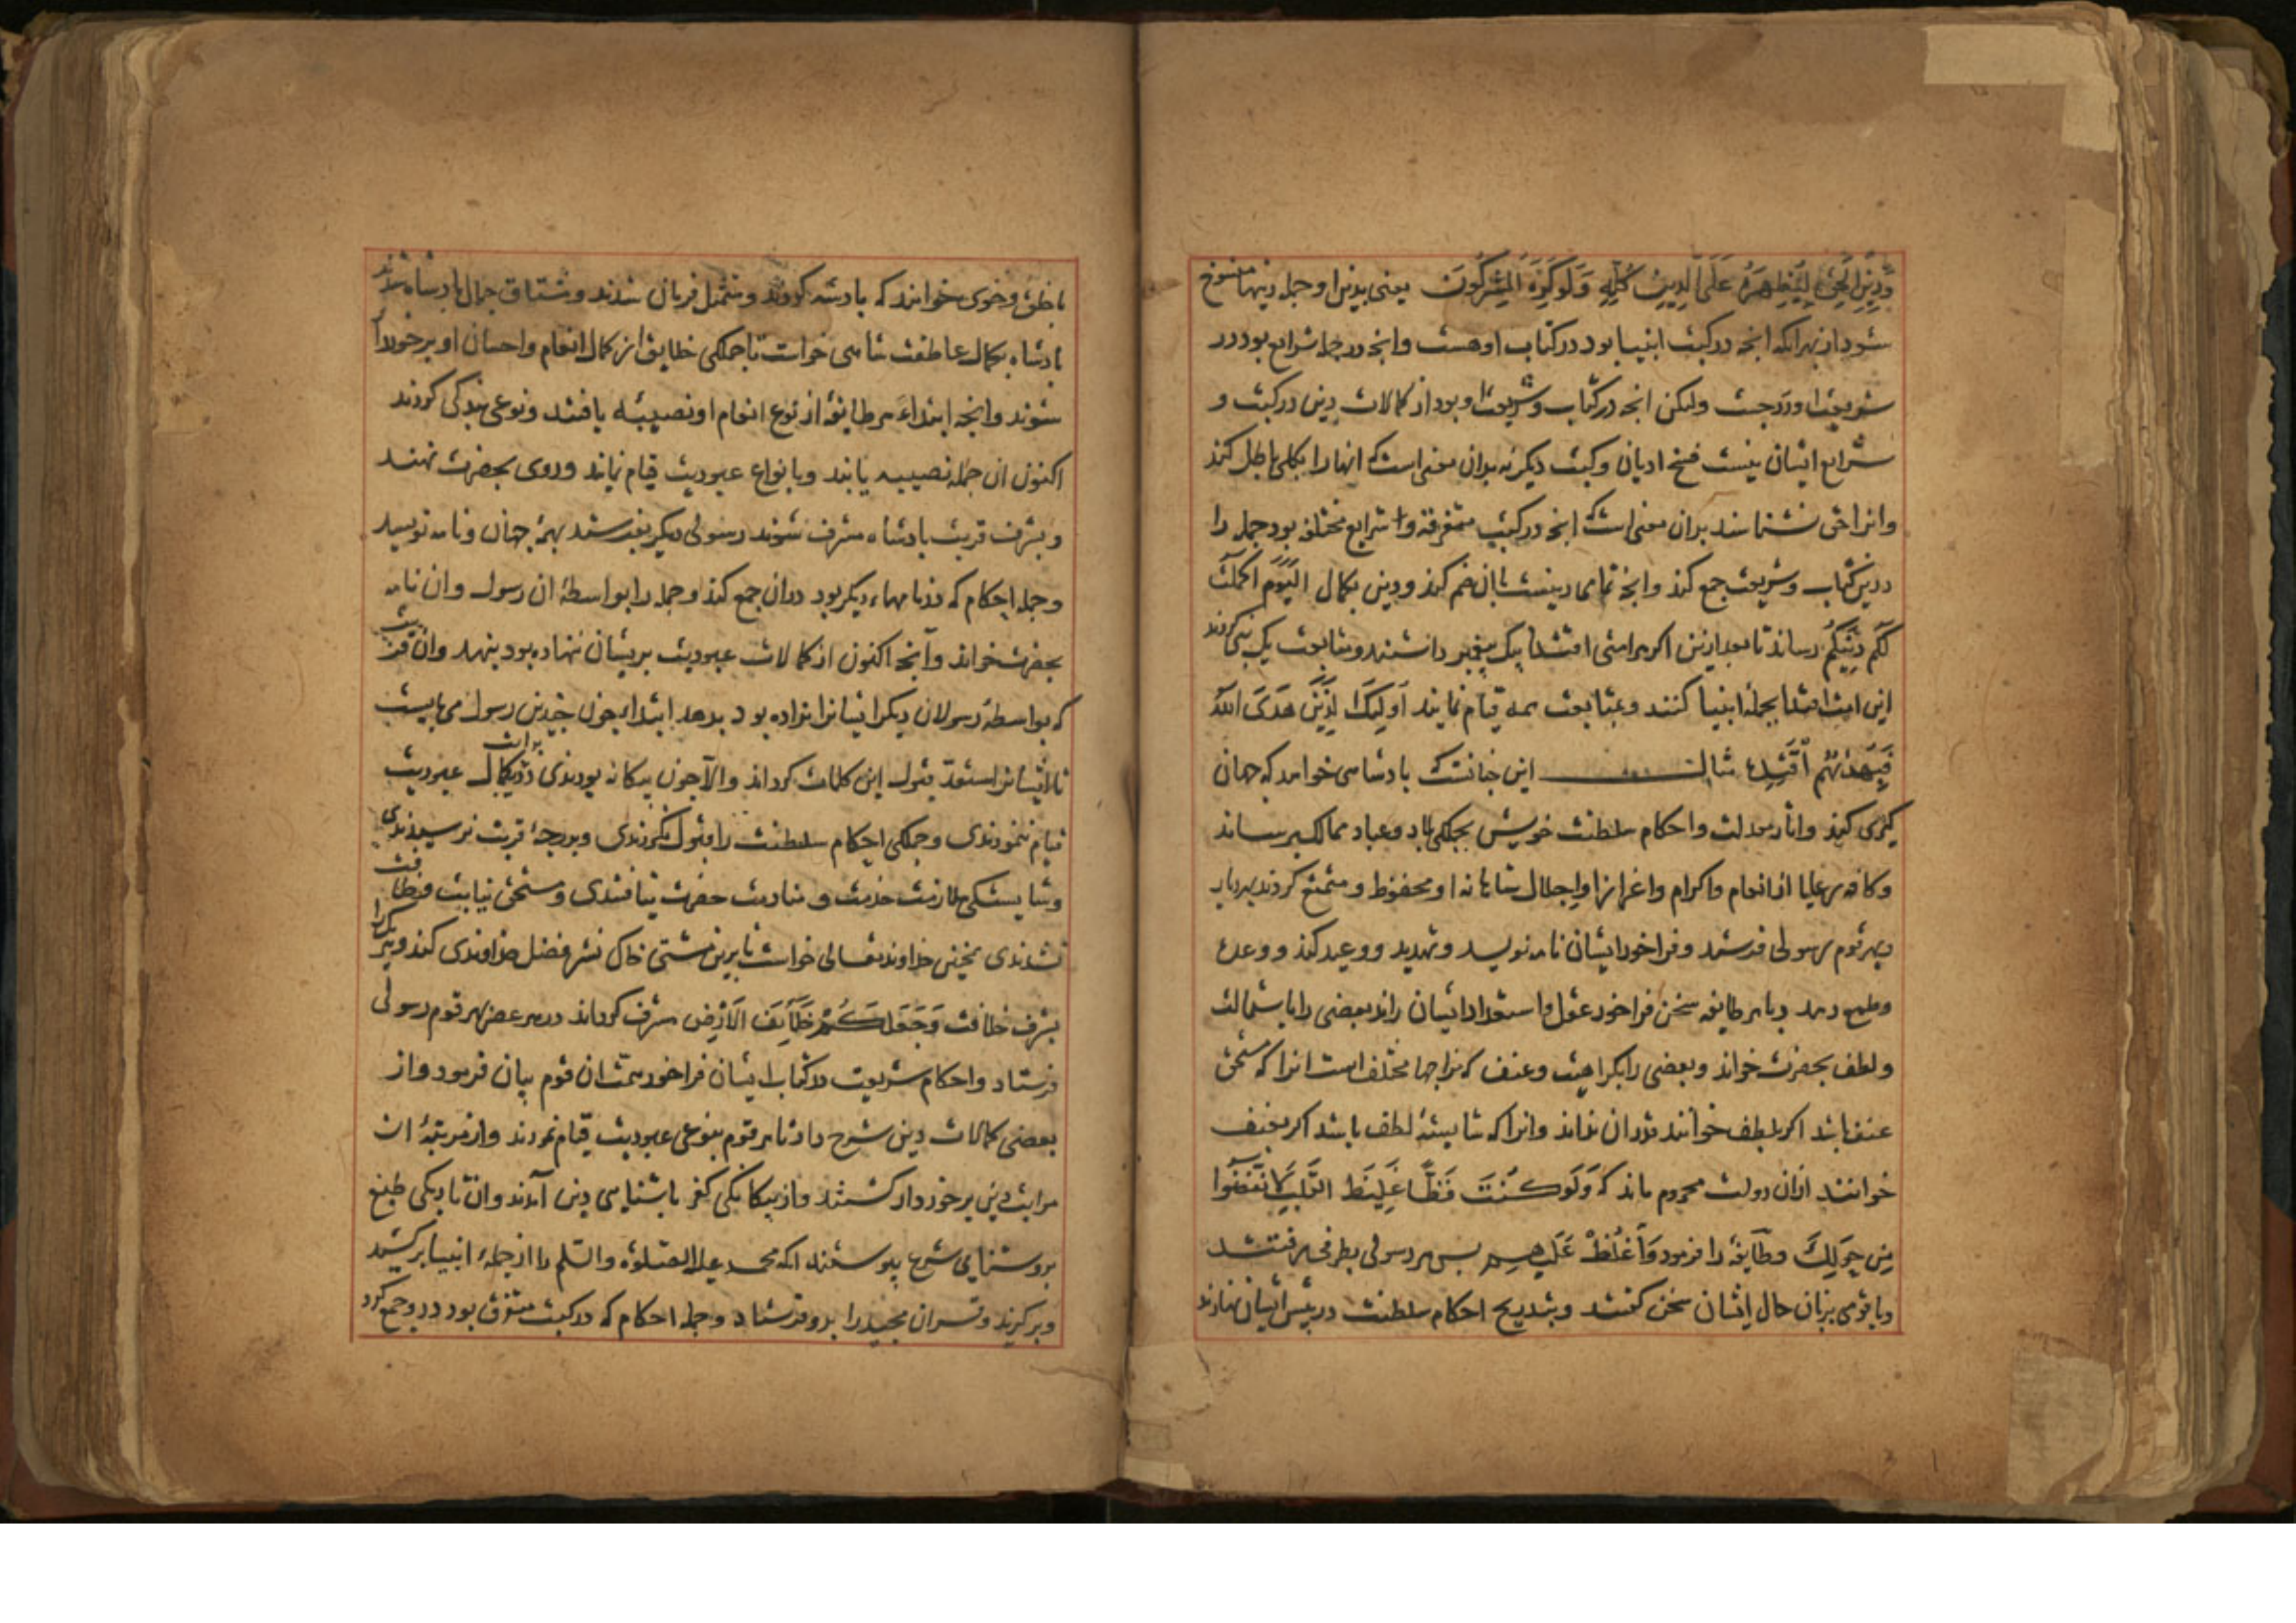 وَدِينِ الْحَقِّ لِيُظْهِرَهُ عَلَى الدِّينِ كُلِّهِ وَلَوْ كَرِهَ الْمُشْرِكُونَ یعنی بدین او جمله دینها منسوخ
شود از بهر انکه انچه در کتب انبیا بود در کتاب او هست وانچه در جمله شرایع بود در
شریعت او درجست ولیکن انچه در کتاب وشریعت او بود از کمالات دین در کتب و
شرایع ایشان نیست فسخ ادیان وکتب دیگر نه بدان معنی است که انها را بکلی باطل کند
وانرا حق نشناسند بدان معنی است که انچه در کتب متفرقه و شرایع مختلفه بود جمله را
درین کتاب وشریعت جمع کند وانچه تمامی دینست بان ضم کند ودین بکمال الْيَوْمَ أَكْمَلْتُ
لَكُمْ دِينَكُمْ رساند تا بعد ازین اکر هر امتی اقتدا بیک پیغمبر داشتند ومتابعت یک نبی کردند
این امت اقتدا بجملهٔ انبیا کنند وبمتابعت همه قیام نمایند أُولَئِكَ الَّذِينَ هَدَى اللَّهُ
فَبِهُدَاهُمُ اقْتَدِهْ مثال این چنانست که بادشاهی خواهد که جهان
کیری کند واثار معدلت واحکام سلطنت خویش بجملکی بلاد وعباد ممالک برساند
وکافه رعایا از انعام واکرام واعزاز واجلال شاهانه او محفوظ ومتمتع کردند بهر دیار
وبهر قوم رسولی فرستد وفراخور ایشان نامه نویسد وتهدید ووعید کند ووعده
وطمع دهد وبا هر طایفه سخن فراخور عقل واستعداد ایشان راند بعضی را باستمالت
ولطف بحضرت خواند وبعضی را بکراهیت وعنف که مزاجها مختلف است انرا که مستحق
عنف باشد اکر بلطف خوانند قدر ان نداند وانرا که شایستهٔ لطف باشد اکر بعنف
خوانند ازان دولت محروم ماند که وَلَوْ كُنْتَ فَظًّا غَلِيظَ الْقَلْبِ لَانْفَضُّوا
مِنْ حَوْلِكَ وطایفهٔ را فرمود وَاغْلُظْ عَلَيْهِمْ بس هر رسولی بطرفی میرفتند
وبا قومی بزبان حال ایشان سخن کفتند وبتدریج احکام سلطنت در پیش ایشان نهادند
با خلق وخوی خوانند که بادشه کردند ومتمثل فرمان شدند ومشتاق جمال بادشاه شدند
بادشاه بکمال عاطفت شاهی خواست تا جملکی خلایق از کمال انعام واحسان او برخوردار
شوند وانچه ابتداء هر طایفهٔ از نوع انعام او نصیبه یافتند ونوعی بندکی کردند
اکنون ازان جمله نصیبه یابند وبانواع عبودیت قیام نمایند وروی بحضرت نهند
وبشرف قربت بادشاه مشرف شوند رسولی دیکر بفرستد بهمهٔ جهان ونامه نویسد
وجمله احکام که در نامهاء دیکر بود دران جمع کند وجمله را بواسطهٔ ان رسول وان نامه
بحضرت خواند وآنچه اکنون از کمالات عبودیت بریشان ننهاده بود بنهد وان قربت
که بواسطهٔ رسولان دیکر ایشانرا نداده بود بدهد ابتداء چون چندین رسول می بایست
تا ایشانرا مستعد قبول این کلمات کرداند والا چون بیکانه بودندی برات دو بکمال عبودیت
قیام ننمودندی وجملکی احکام سلطنت را قبول نکردندی وبدرجهٔ قربت نرسیدندی
وشایستکی ملازمت خدمت ومنادمت حضرت نیافتندی ومستحق نیابت وخلافت
نشدندی همچنین خداوند تعالی خواست تا برین مشتی خاک نشر فضل خداوندی کند ویکی را
بشرف خلافت وَجَعَلَكُمْ خَلَائِفَ الْأَرْضِ مشرف کرداند در هر عصر بهر قوم رسولی
فرستاد واحکام شریعت در کتاب ایشان فراخور همت ان قوم بیان فرمود واز
بعضی کمالات دین شرح داد تا هر قوم بنوعی عبودیت قیام نمودند واز مرتبهٔ از
مراتب دین برخوردار کشتند واز بیکانکی کفر باشنایی دین آمدند واز تاریکی طبع
بروشنایی شرع پیوستند انکه محمد علیه الصلوة والسلم را از جملهٔ انبیا برکشید
وبرکزید وقران مجید را بدو فرستاد وجمله احکام که در کتب متفرق بود درو جمع کرد